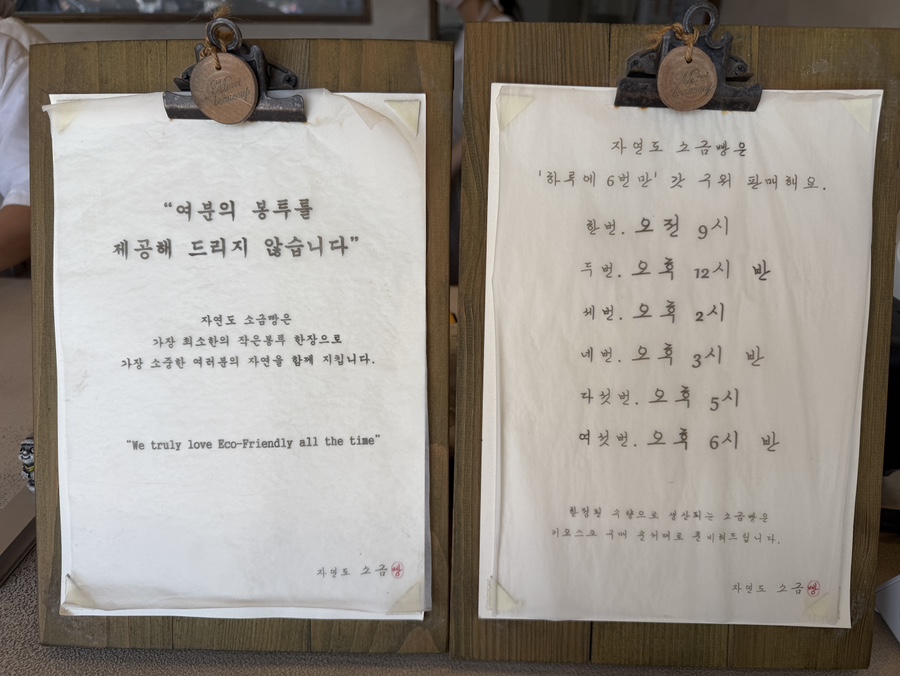 “여분의 봉투를
제공해 드리지 않습니다”
자연도 소금빵은
가장 최소한의 작은봉투 한장으로
가장 소중한 여러분의 자연을 함께 지킵니다.
“We truly love Eco-Friendly all the time”
자연도 소금빵
자연도 소금빵은
'하루에 6번만' 갓 구워 판매해요.
한번. 오전 9시
두번. 오후 12시 반
세번. 오후 2시
네번. 오후 3시 반
다섯번. 오후 5시
여섯번. 오후 6시 반
한정된 수량으로 생산되는 소금빵은
키오스크 구매 순서대로 준비해드립니다.
자연도 소금빵